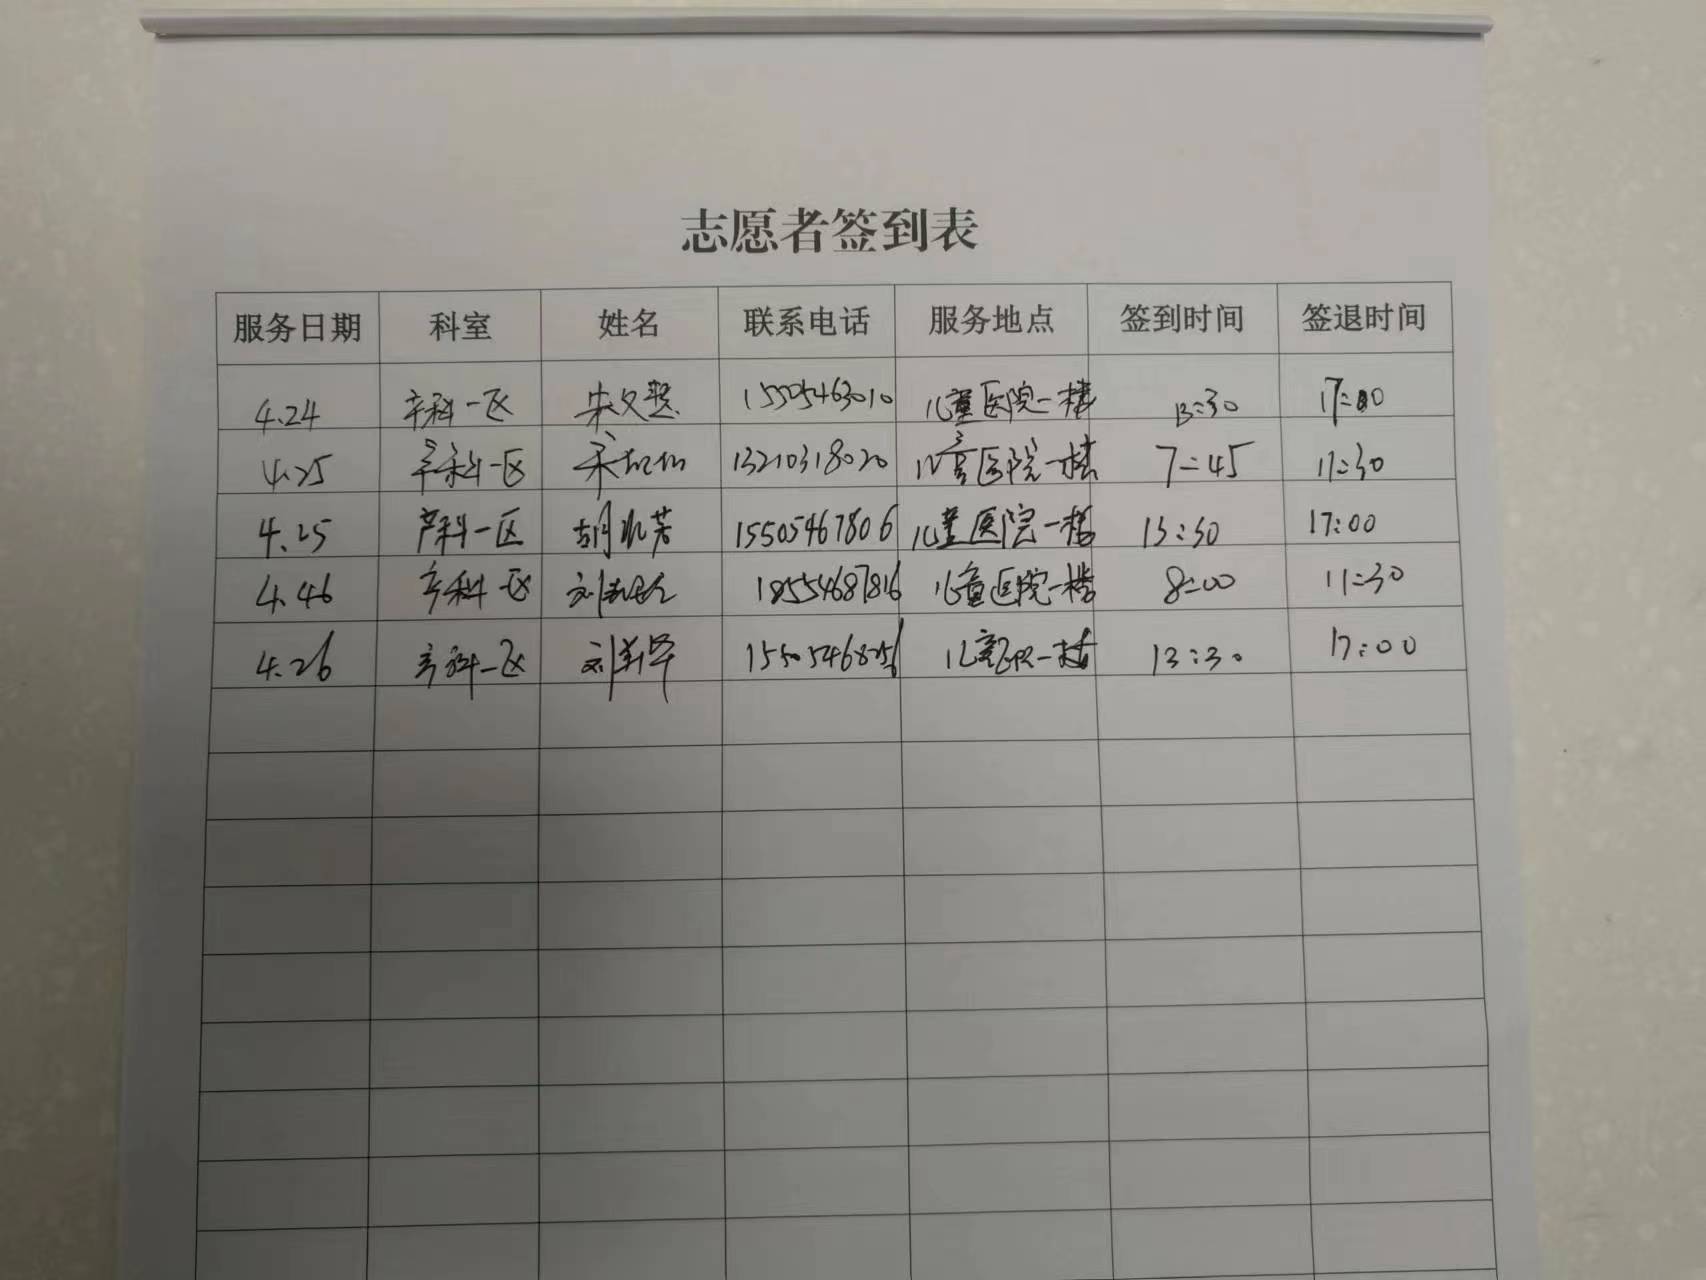 志愿者签到表
服务日期 科室 姓名 联系电话 服务地点 签到时间 签退时间
4.24 产科一区 宋文慧 15505463010 儿童医院一楼 13:30 17:00
4.25 产科一区 13210318020 儿童医院一楼 7:45 11:30
4.25 产科一区 胡 芳 15505467806 儿童医院一楼 13:30 17:00
4.46 产科一区 刘 18554687816 儿童医院一楼 8:00 11:30
4.26 产科一区 刘 儿童医院一楼 13:30 17:00